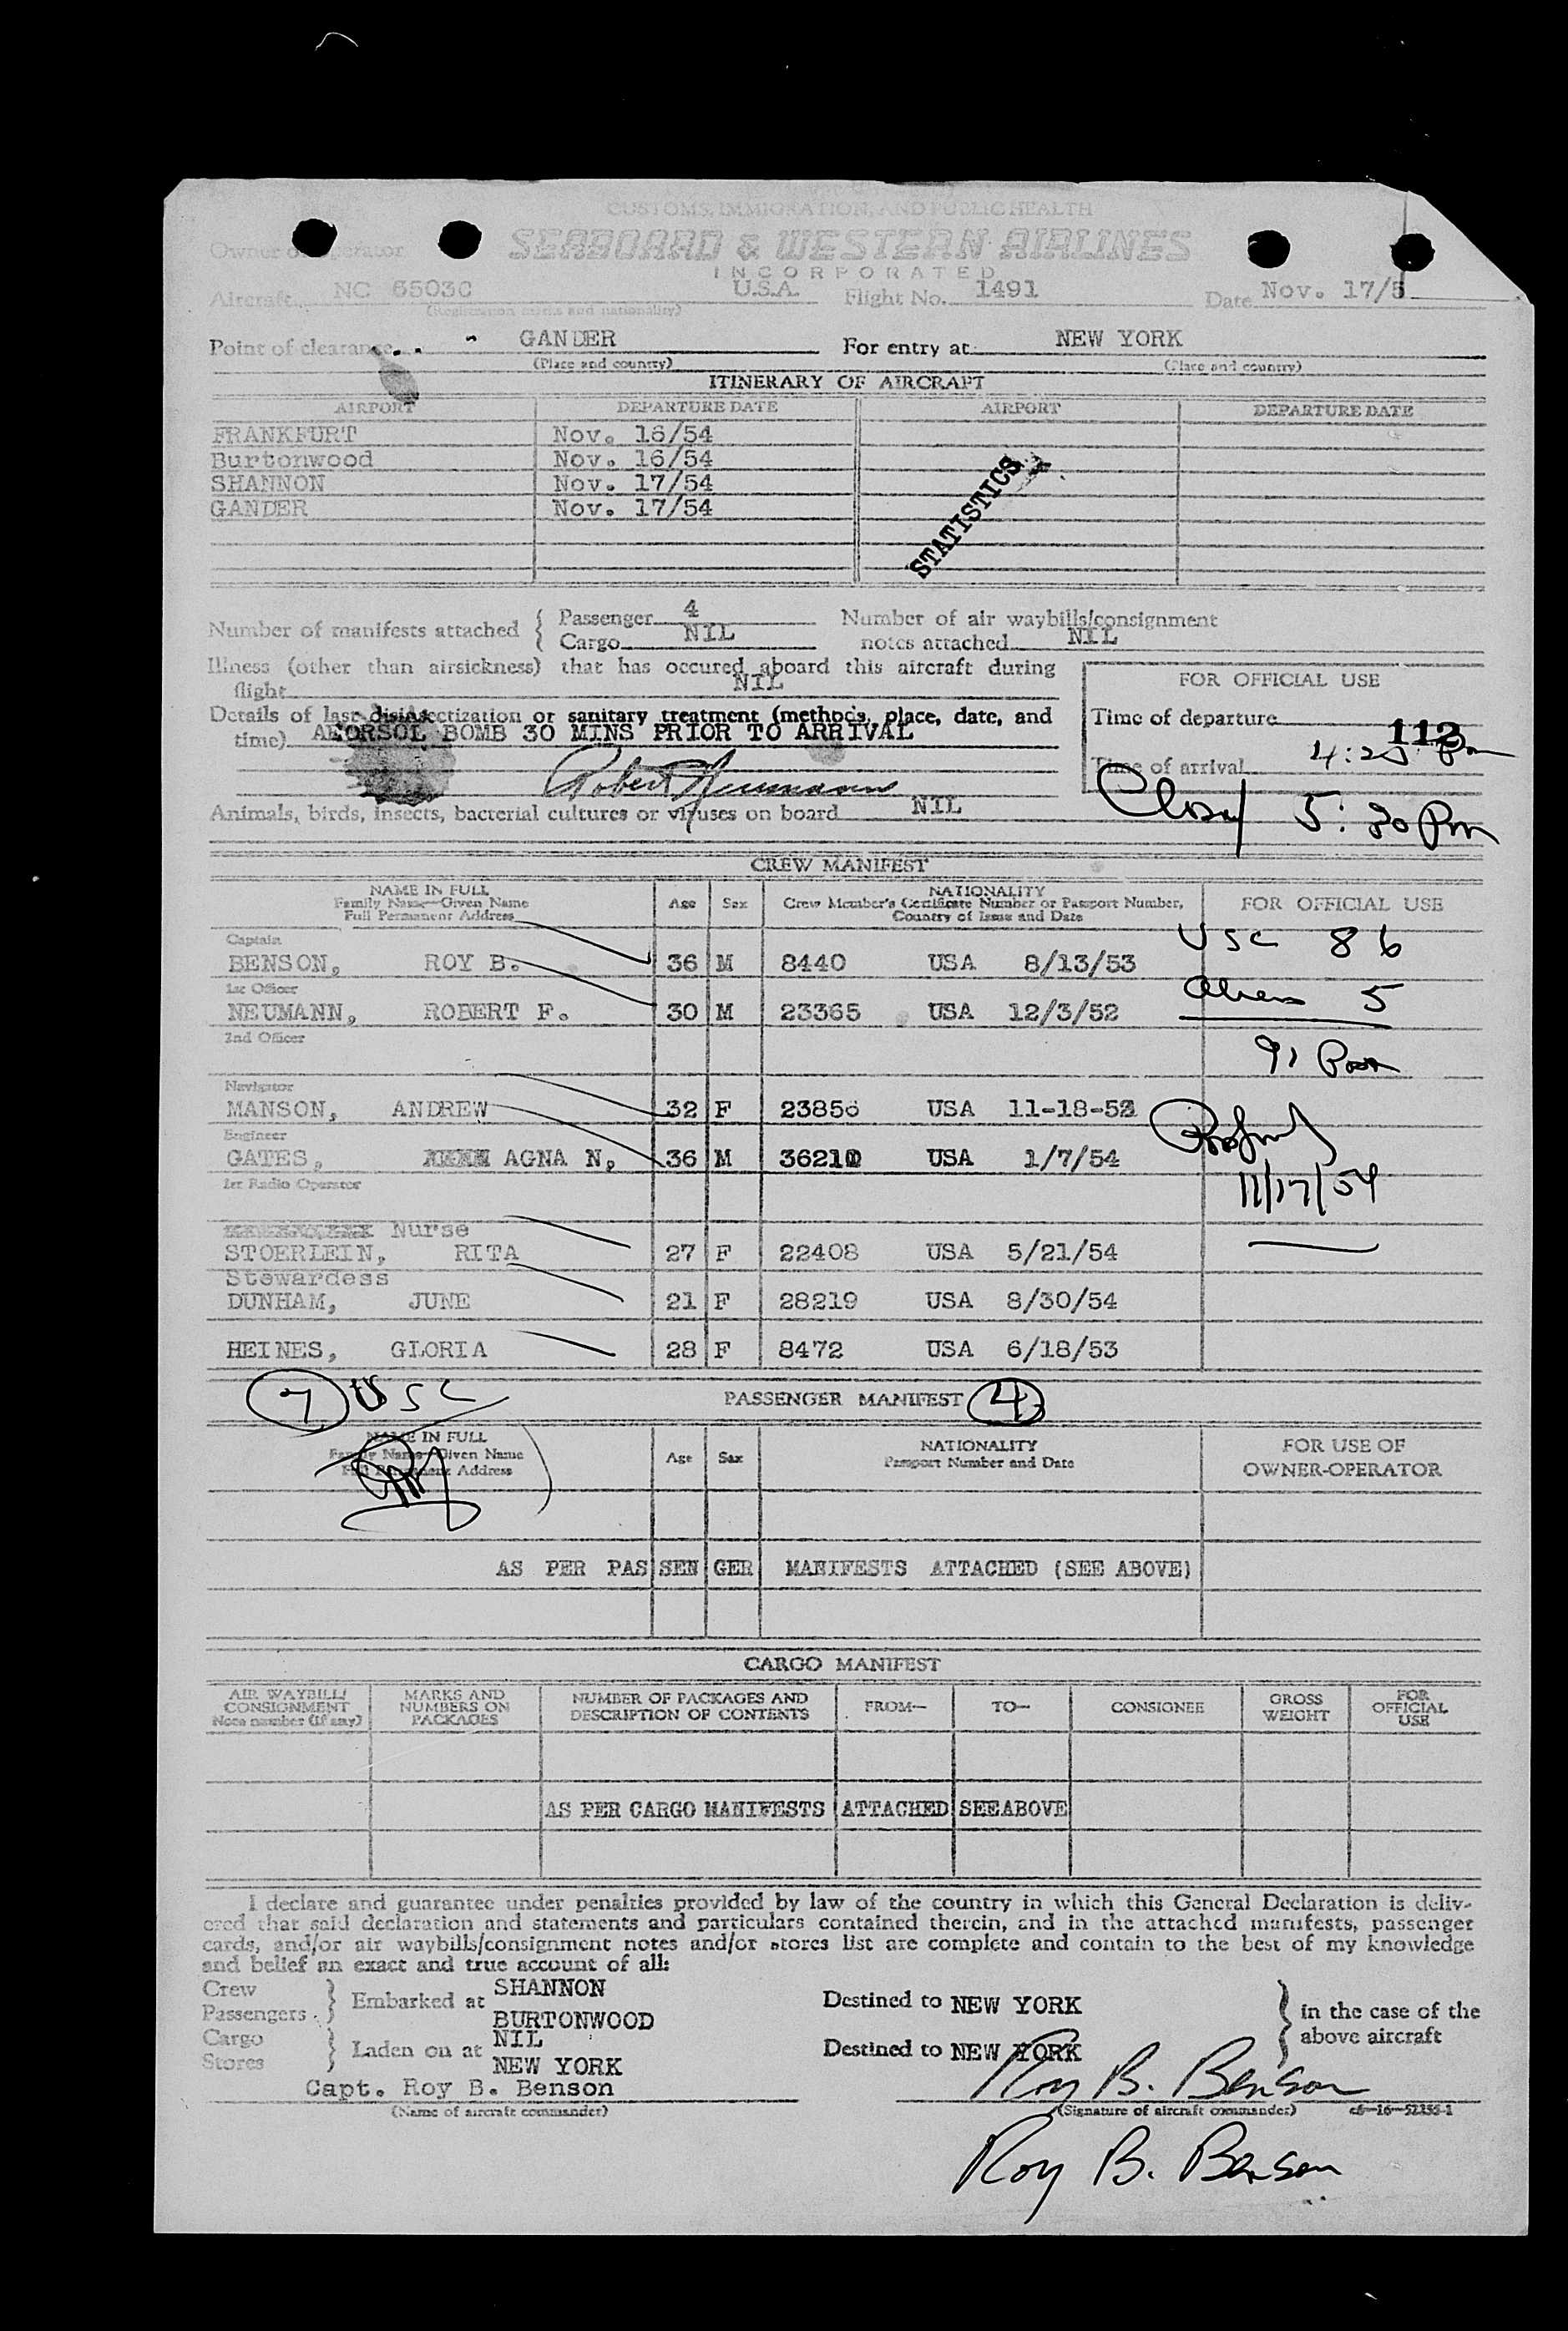 CUSTOMS, IMMIGRATION, AND PUBLIC HEALTH
Owner or Operator SEABOARD & WESTERN AIRLINES
INCORPORATED
Aircraft NC 6503C U.S.A. Flight No. 1491 Date Nov. 17/5
(Registration marks and nationality)
Point of clearance GANDER For entry at NEW YORK
(Place and country) (Place and country)
ITINERARY OF AIRCRAFT
AIRPORT DEPARTURE DATE AIRPORT DEPARTURE DATE
FRANKFURT Nov. 16/54
Burtonwood Nov. 16/54
SHANNON Nov. 17/54
GANDER Nov. 17/54
STATISTICS
Number of manifests attached { Passenger 4 Number of air waybills/consignment
Cargo NIL notes attached NIL
Illness (other than airsickness) that has occured aboard this aircraft during
flight NIL
FOR OFFICIAL USE
Details of last disinsectization or sanitary treatment (methods, place, date, and
time) AEORSOL BOMB 30 MINS PRIOR TO ARRIVAL
Time of departure
112
Time of arrival 4:25 Pm
Robert Neumann
Closed 5:30 Pm
Animals, birds, insects, bacterial cultures or viruses on board NIL
CREW MANIFEST
NAME IN FULL
Family Name—Given Name
Full Permanent Address
Age Sex
NATIONALITY
Crew Member's Certificate Number or Passport Number,
Country of Issue and Date
FOR OFFICIAL USE
Captain
BENSON, ROY B. 36 M 8440 USA 8/13/53
USC 86
1st Officer
NEUMANN, ROBERT F. 30 M 23365 USA 12/3/52
Aliens 5
2nd Officer
91
Navigator
MANSON, ANDREW 32 F 23856 USA 11-18-52
Engineer
GATES, AGNA N, 36 M 36210 USA 1/7/54
11/17/54
1st Radio Operator
Nurse
STOERLEIN, RITA 27 F 22408 USA 5/21/54
Stewardess
DUNHAM, JUNE 21 F 28219 USA 8/30/54
HEINES, GLORIA 28 F 8472 USA 6/18/53
7 USC
PASSENGER MANIFEST 4
NAME IN FULL
Family Name—Given Name
Full Permanent Address
Age Sex
NATIONALITY
Passport Number and Date
FOR USE OF
OWNER-OPERATOR
AS PER PASSENGER MANIFESTS ATTACHED (SEE ABOVE)
CARGO MANIFEST
AIR WAYBILL/
CONSIGNMENT
Note number (if any)
MARKS AND
NUMBERS ON
PACKAGES
NUMBER OF PACKAGES AND
DESCRIPTION OF CONTENTS
FROM— TO— CONSIGNEE
GROSS
WEIGHT
FOR
OFFICIAL
USE
AS PER CARGO MANIFESTS ATTACHED SEEABOVE
I declare and guarantee under penalties provided by law of the country in which this General Declaration is deliv-
ered that said declaration and statements and particulars contained therein, and in the attached manifests, passenger
cards, and/or air waybills/consignment notes and/or stores list are complete and contain to the best of my knowledge
and belief an exact and true account of all:
Crew
Passengers } Embarked at SHANNON
BURTONWOOD
Destined to NEW YORK
in the case of the
above aircraft
Cargo
Stores } Laden on at NIL
NEW YORK
Destined to NEW YORK
Capt. Roy B. Benson
Roy B. Benson
(Name of aircraft commander) (Signature of aircraft commander)
Roy B. Benson